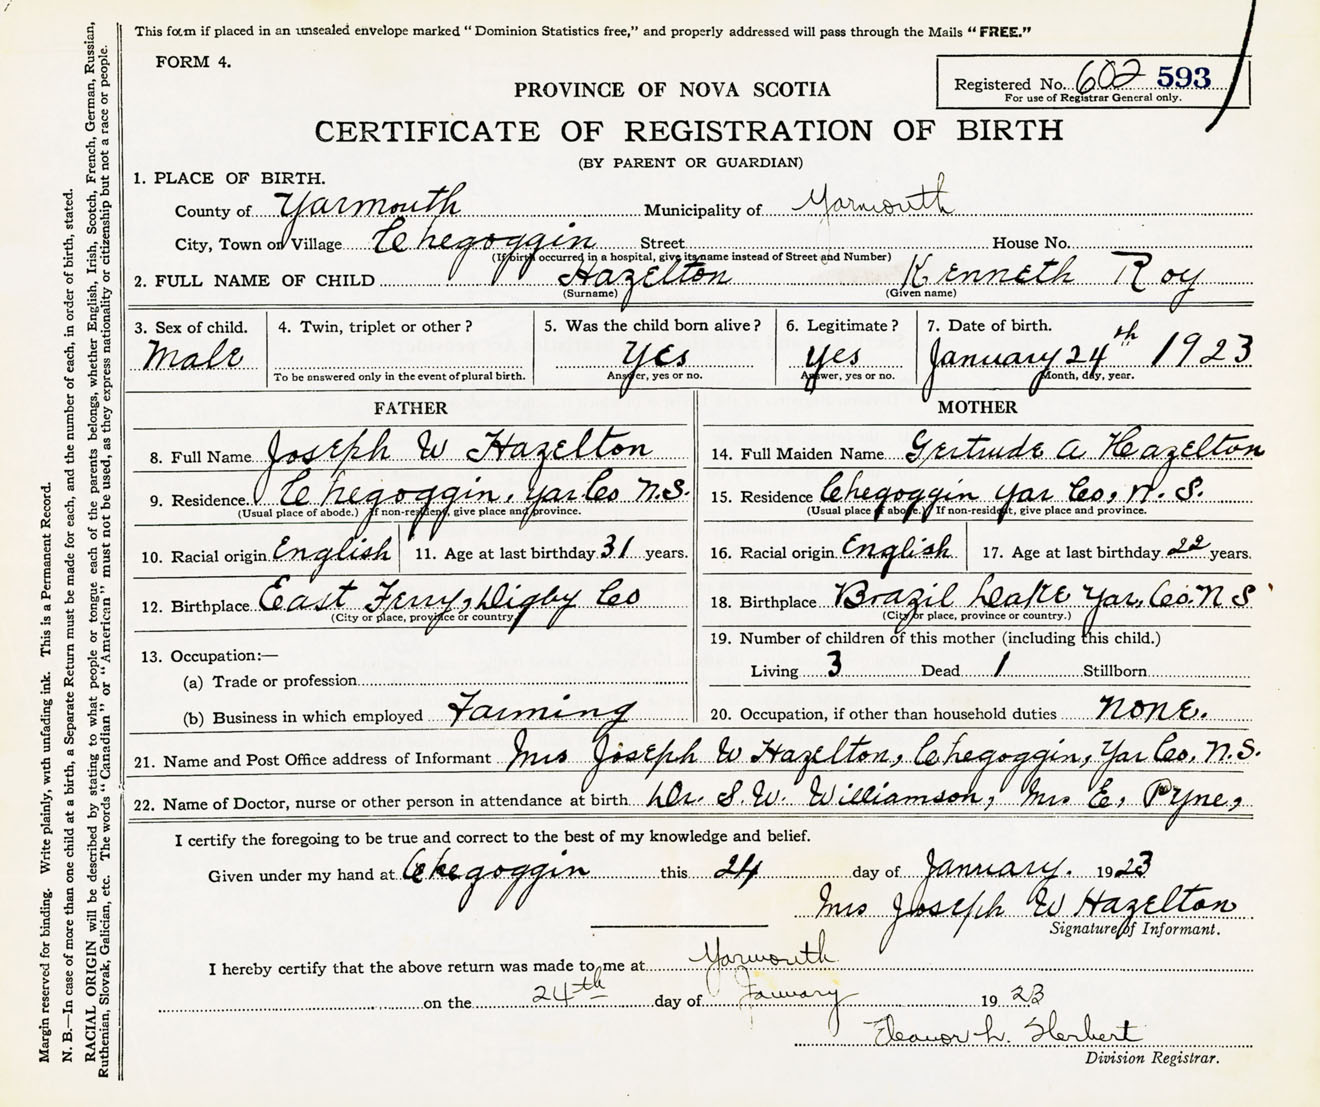 This form if placed in an unsealed envelope marked "Dominion Statistics free," and properly addressed will pass through the Mails "FREE."
FORM 4.
Registered No. 602 593
For use of Registrar General only.
PROVINCE OF NOVA SCOTIA
CERTIFICATE OF REGISTRATION OF BIRTH
(BY PARENT OR GUARDIAN)
1. PLACE OF BIRTH.
County of Yarmouth Municipality of Yarmouth
City, Town or Village Chegoggin Street House No.
(If birth occurred in a hospital, give its name instead of Street and Number)
2. FULL NAME OF CHILD Hazelton Kenneth Roy
(Surname) (Given name)
3. Sex of child. 4. Twin, triplet or other? 5. Was the child born alive? 6. Legitimate? 7. Date of birth.
Male Yes yes January 24th 1923
To be answered only in the event of plural birth. Answer, yes or no. Answer, yes or no. Month, day, year.
FATHER MOTHER
8. Full Name Joseph W Hazelton 14. Full Maiden Name Gertrude A Hazelton
9. Residence Chegoggin, Yar Co N.S. 15. Residence Chegoggin Yar Co, N. S.
(Usual place of abode.) If non-resident, give place and province. (Usual place of abode.) If non-resident, give place and province.
10. Racial origin English 11. Age at last birthday 31 years. 16. Racial origin English 17. Age at last birthday 22 years.
12. Birthplace East Ferry, Digby Co 18. Birthplace Brazil Lake Yar, Co. N S
(City or place, province or country.) (City or place, province or country.)
19. Number of children of this mother (including this child.)
13. Occupation:—
Living 3 Dead 1 Stillborn
(a) Trade or profession
(b) Business in which employed Farming 20. Occupation, if other than household duties none.
21. Name and Post Office address of Informant Mrs Joseph W Hazelton, Chegoggin, Yar Co, N.S.
22. Name of Doctor, nurse or other person in attendance at birth Dr. S. W. Williamson, Mrs E, Pyne,
I certify the foregoing to be true and correct to the best of my knowledge and belief.
Given under my hand at Chegoggin this 24 day of January. 1923
Mrs Joseph W Hazelton
Signature of Informant.
I hereby certify that the above return was made to me at Yarmouth
on the 24th day of January 1923
Eleanor L. Herbert
Division Registrar.
Margin reserved for binding. Write plainly, with unfading ink. This is a Permanent Record.
N. B.—In case of more than one child at a birth, a Separate Return must be made for each, and the number of each, in order of birth, stated.
RACIAL ORIGIN will be described by stating to what people or tongue each of the parents belongs, whether English, Irish, Scotch, French, German, Russian,
Ruthenian, Slovak, Galician, etc. The words "Canadian" or "American" must not be used, as they express nationality or citizenship but not a race or people.